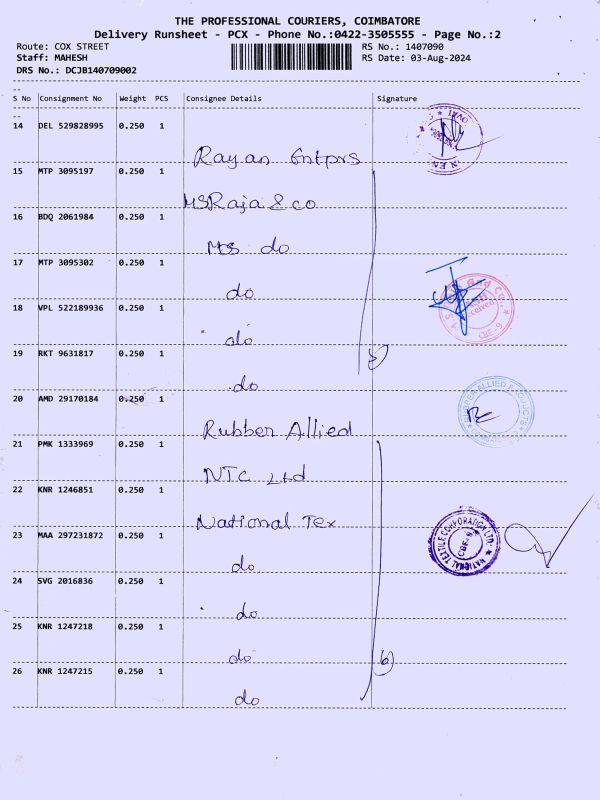 THE PROFESSIONAL COURIERS, COIMBATORE
Delivery Runsheet - PCX - Phone No.:0422-3505555 - Page No.:2
Route: COX STREET RS No.: 1407090
Staff: MAHESH RS Date: 03-Aug-2024
DRS No.: DCJB140709002
S No Consignment No Weight PCS Consignee Details Signature
14 DEL 529828995 0.250 1
Rayan Entprs
15 MTP 3095197 0.250 1
MS Raja & co
16 BDQ 2061984 0.250 1
MS do
17 MTP 3095302 0.250 1
do
18 VPL 522189936 0.250 1
do
19 RKT 9631817 0.250 1
do
5)
20 AMD 29170184 0.250 1
Rubber Allied
RUBBER ALLIED PRODUCTS
21 PMK 1333969 0.250 1
NTC Ltd
22 KNR 1246851 0.250 1
National Tex
23 MAA 297231872 0.250 1
do
NATIONAL TEXTILE CORPORATION LTD.
CBE-9
24 SVG 2016836 0.250 1
do
25 KNR 1247218 0.250 1
do
6)
26 KNR 1247215 0.250 1
do